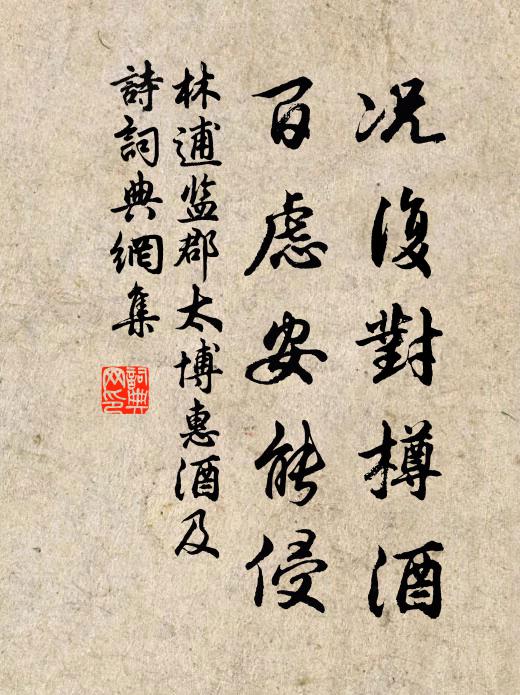 况復對樽酒
百慮安能侵
林逋监郡太博惠酒及
詩詞典網集
詞典網印